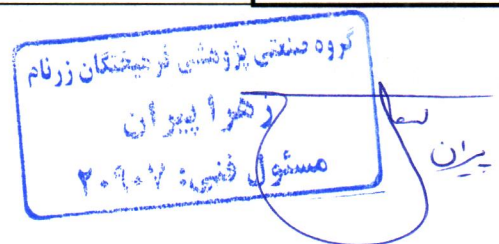 گروه صنعتی پژوهشی فرهیختگان زرنام
زهرا پیران
مسئول فنی: ۲۰۹۰۷
پیران